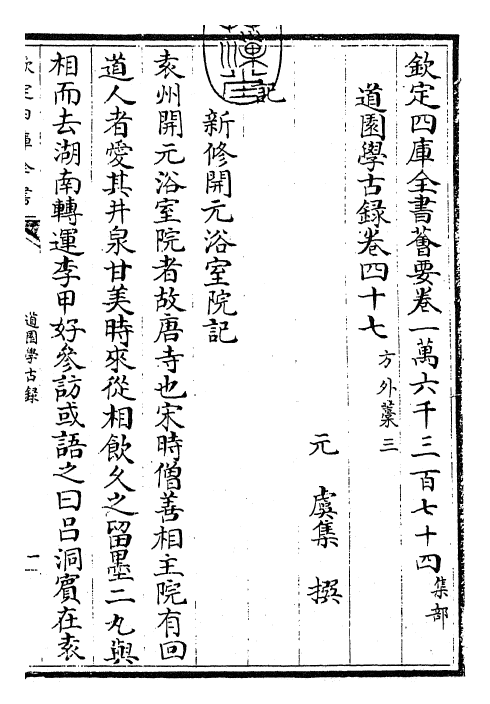 欽定四庫全書薈要卷一萬六千三百七十四集部
道園學古録卷四十七方外藁三
元虞集撰
記
新修開元浴室院記
袁州開元浴室院者故唐寺也宋時僧善相主院有回
道人者愛其井泉甘美時來從相飲久之留墨二丸與
相而去湖南轉運李甲好參訪或語之曰吕洞賓在袁
欽定四庫全書
道園學古録
一